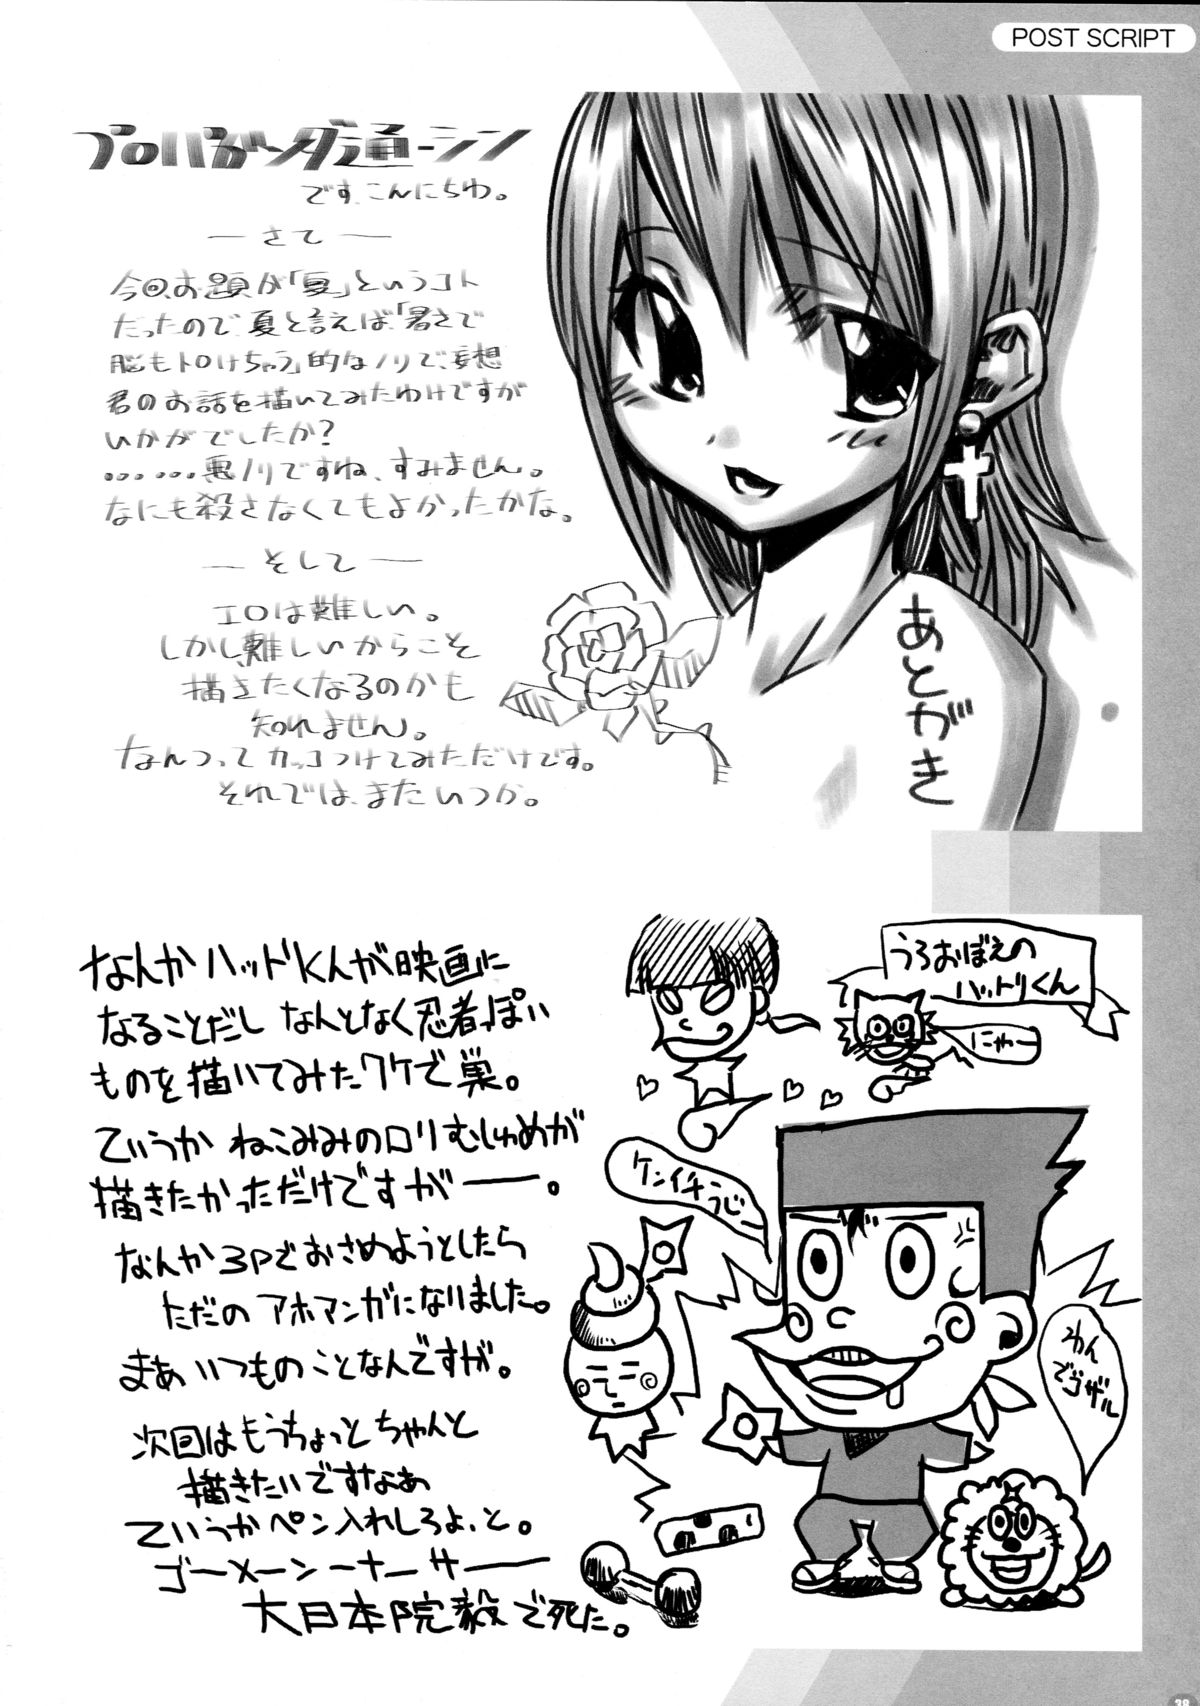 POST SCRIPT
プロパガンダ通ーシン
です、こんにちわ。
—さて—
今回、お題が「夏」というコト
だったので、夏と言えば、「暑さで
脳もトロけちゃう」的なノリで、妄想
君のお話を描いてみたわけですが
いかがでしたか?
………悪ノリですね、すみません。
なにも殺さなくてもよかったかな。
—そして—
エロは難しい。
しかし、難しいからこそ
描きたくなるのかも
知れません。
なんつってカッコつけてみただけです。
それでは、またいつか。
あとがき
なんかハットリくんが映画に
なることだし なんとなく忍者っぽい
ものを描いてみたワケで巣。
ていうか ねこみみのロリむしゅめが
描きたかっただけですがー。
なんか3Pでおさめようとしたら
ただの アホマンガになりました。
まあ いつもの ことなんですが。
次回は もうちょっと ちゃんと
描きたいですなあ
ていうか ペン入れしろよ、と。
ゴーメーンーナーサー
大日本院毅で死た。
うろおぼえの
ハットリくん
にゃー
ケンイチうじー
わん
でゴザル